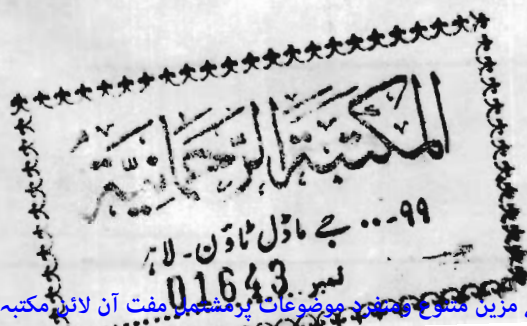 المكتبة الرحمانية
۹۹... جے ماڈل ٹاؤن ۔ لاہور
نمبر 01643
مزین متنوع ومنفرد موضوعات پر مشتمل مفت آن لائن مکتبہ